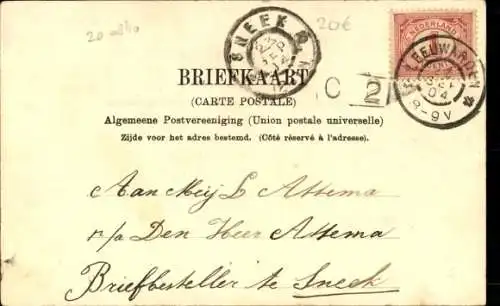 20€
SNEEK
NEDERLAND
LEEUWARDEN
04
8-9V
C 2
BRIEFKAART
(CARTE POSTALE)
Algemeene Postvereeniging (Union postale universelle)
Zijde voor het adres bestemd. (Côté réservé à l'adresse).
Aan Meij L Attema
p/a Den Heer Attema
Briefbesteller te Sneek